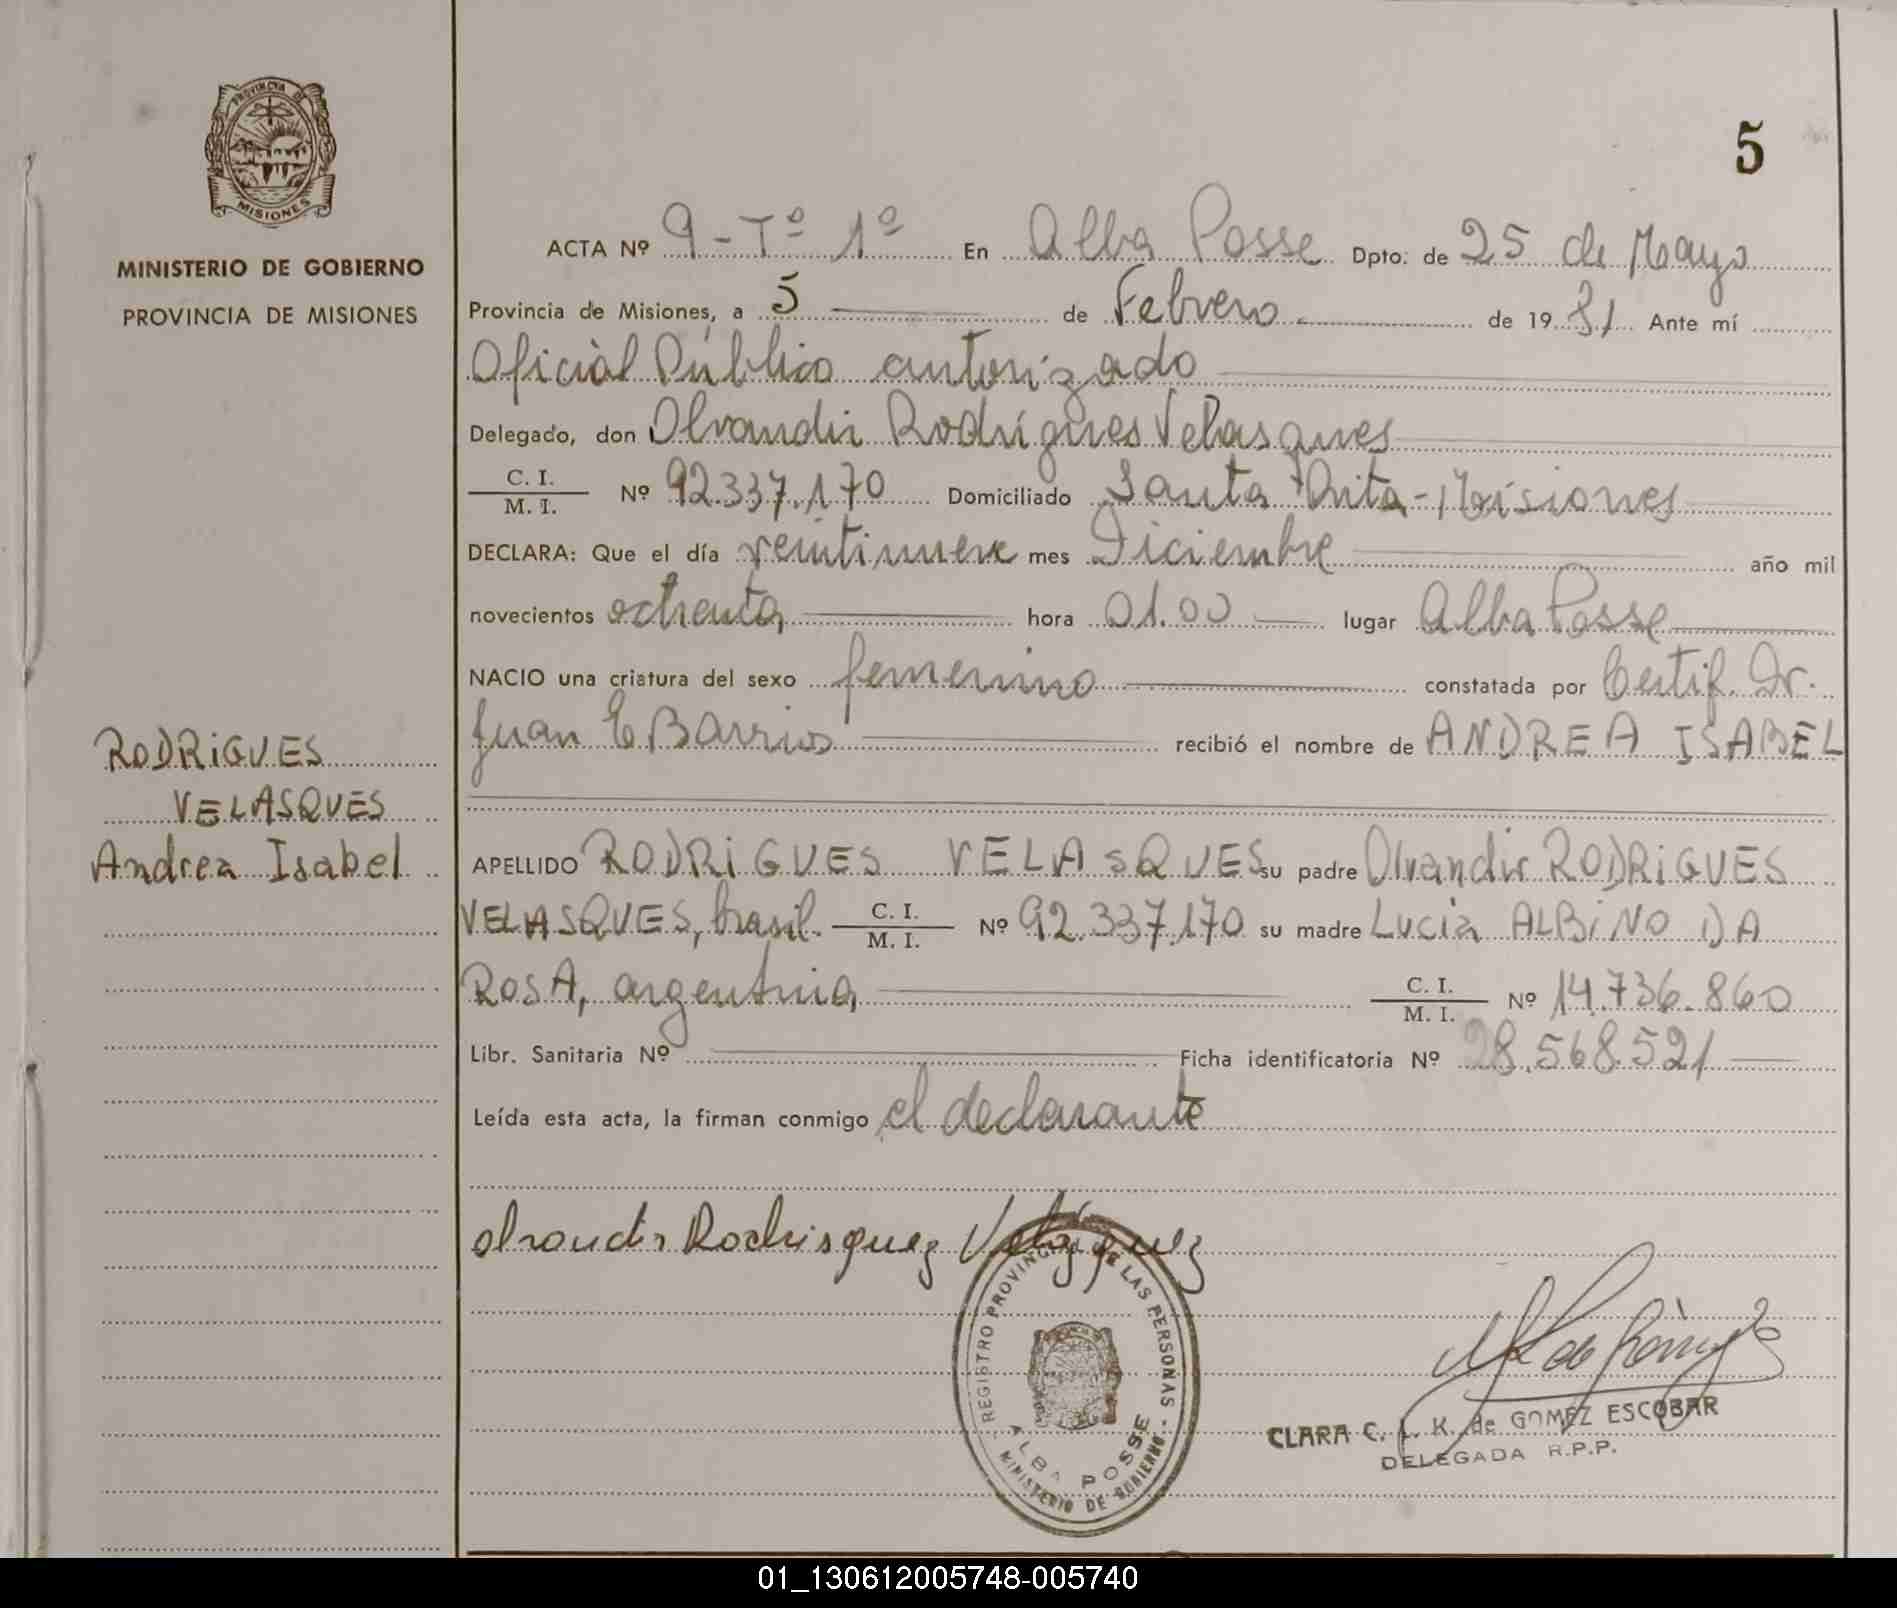 PROVINCIA DE
MISIONES
MINISTERIO DE GOBIERNO
PROVINCIA DE MISIONES
RODRIGUES
VELASQUES
Andrea Isabel
5
ACTA Nº 9 - Tº 1º En Alba Posse Dpto. de 25 de Mayo
Provincia de Misiones, a 5 de Febrero de 1981 Ante mí
Oficial Público autorizado
Delegado, don Olvandir Rodrígues Velasques
C. I.
M. I. Nº 92.337.170 Domiciliado Santa Rita - Misiones
DECLARA: Que el día veintinueve mes Diciembre año mil
novecientos ochenta hora 01.00 lugar Alba Posse
NACIO una criatura del sexo femenino constatada por Certif. Dr.
Juan E Barrios recibió el nombre de ANDREA ISABEL
APELLIDO RODRIGUES VELASQUES su padre Olvandir RODRIGUES
VELASQUES, brasil. C. I. M. I. Nº 92.337.170 su madre Lucia ALBINO DA
ROSA, argentina C. I. M. I. Nº 14.736.860
Libr. Sanitaria Nº Ficha identificatoria Nº 28.568.521
Leída esta acta, la firman conmigo el declarante
olvandir Rodrisguez Velazquez
REGISTRO PROVINCIAL DE LAS PERSONAS -
ALBA POSSE
MINISTERIO DE GOBIERNO
CLARA C. L. K. de GOMEZ ESCOBAR
DELEGADA R.P.P.
01_130612005748-005740